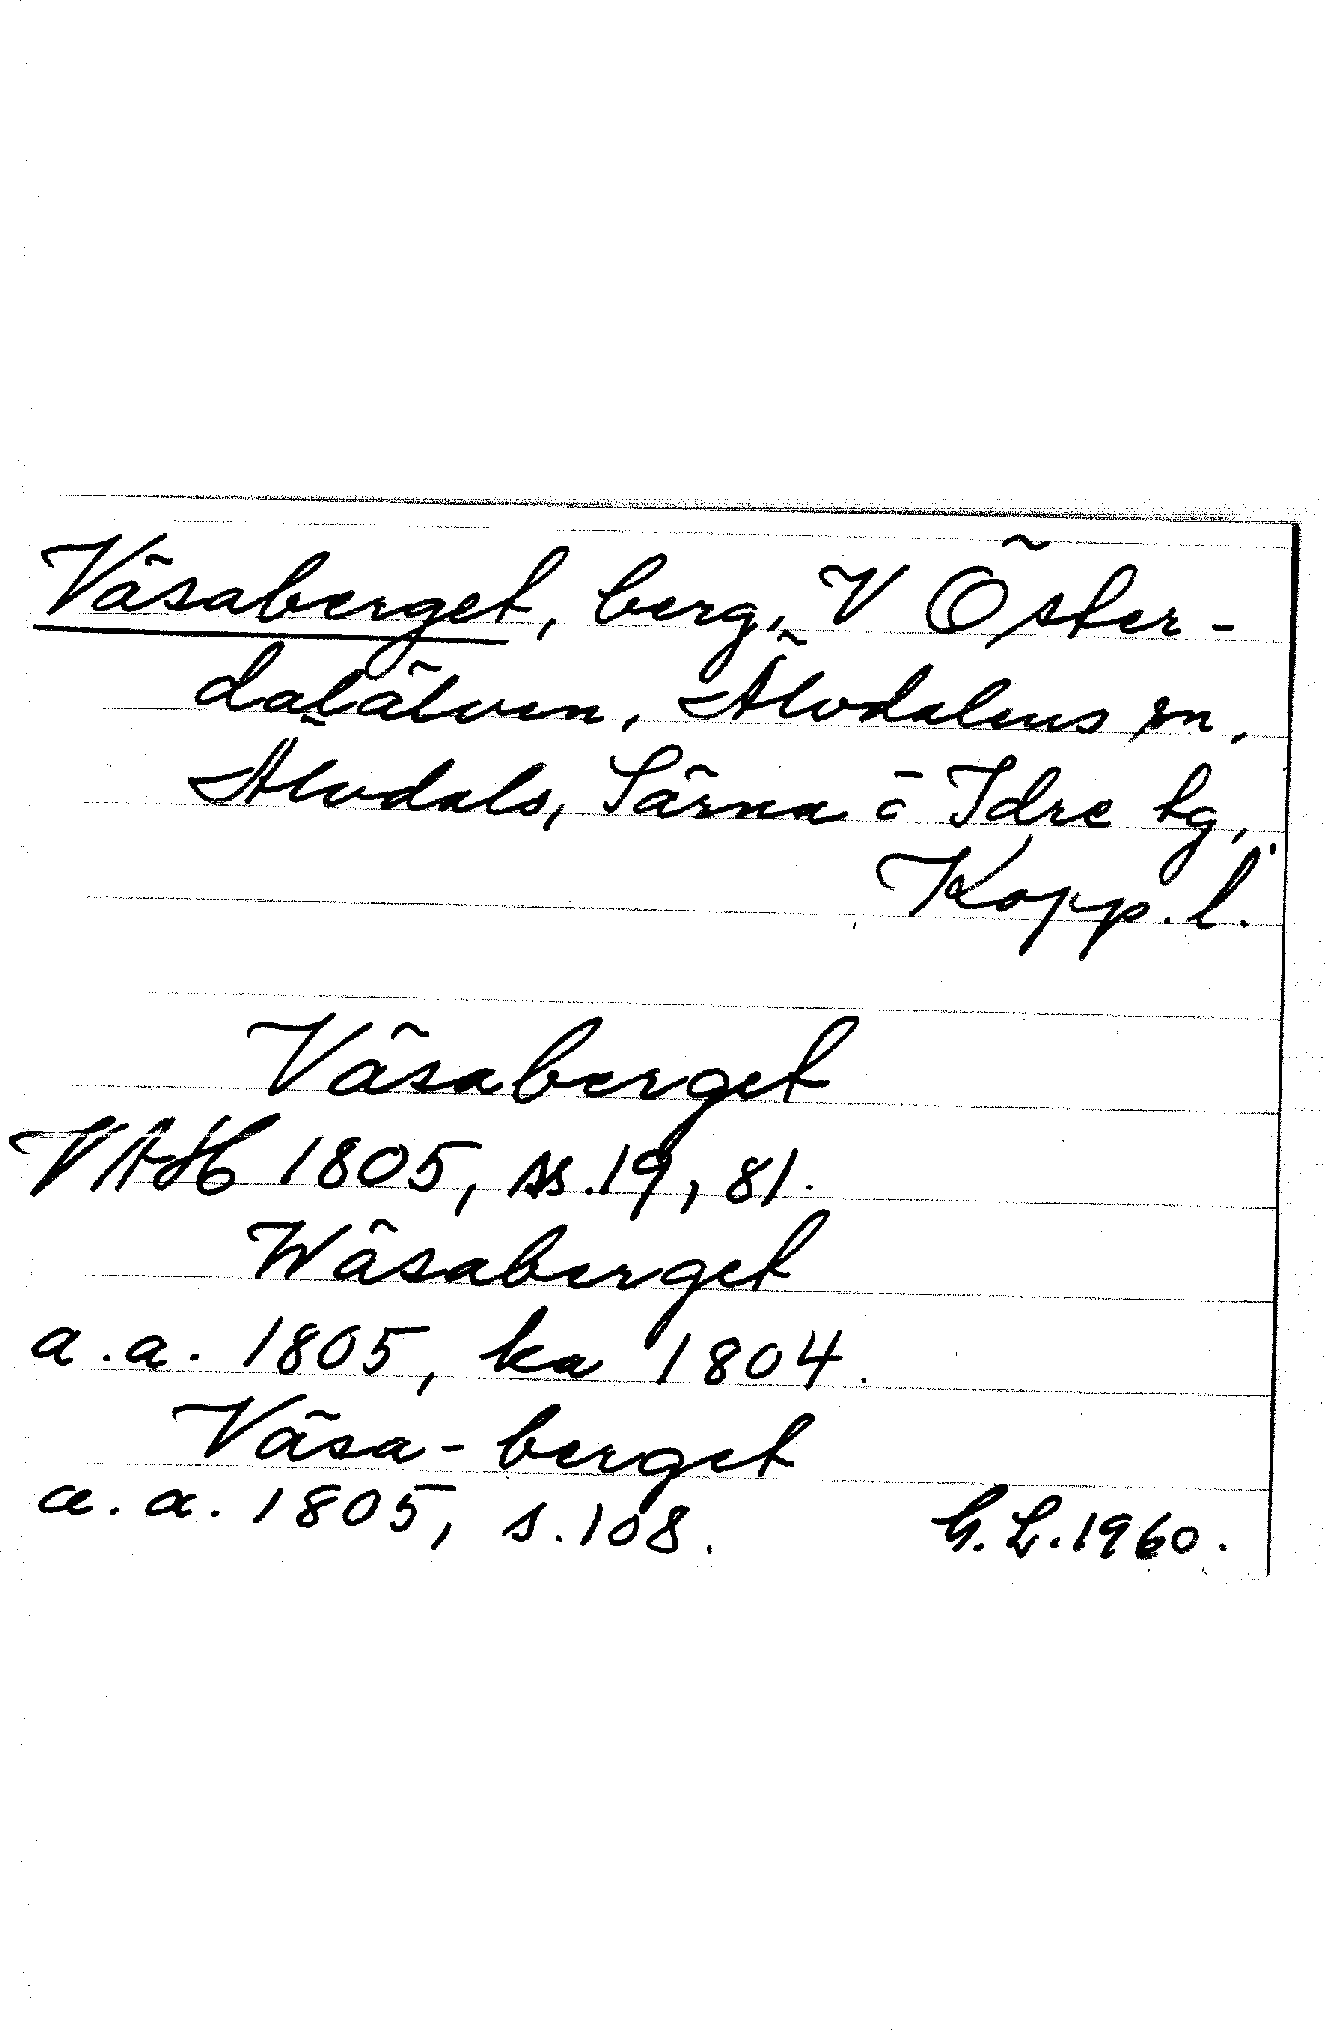 Väsaberget, berg, V Öster-
dalälven, Älvdalens sn,
Älvdals, Särna o Idre tg,
Kopp. l.
Väsaberget
VAH 1805, ss. 19, 81.
Wäsaberget
a.a. 1805, ka 1804.
Väsa-berget
a.a. 1805, s. 108. G. L. 1960.